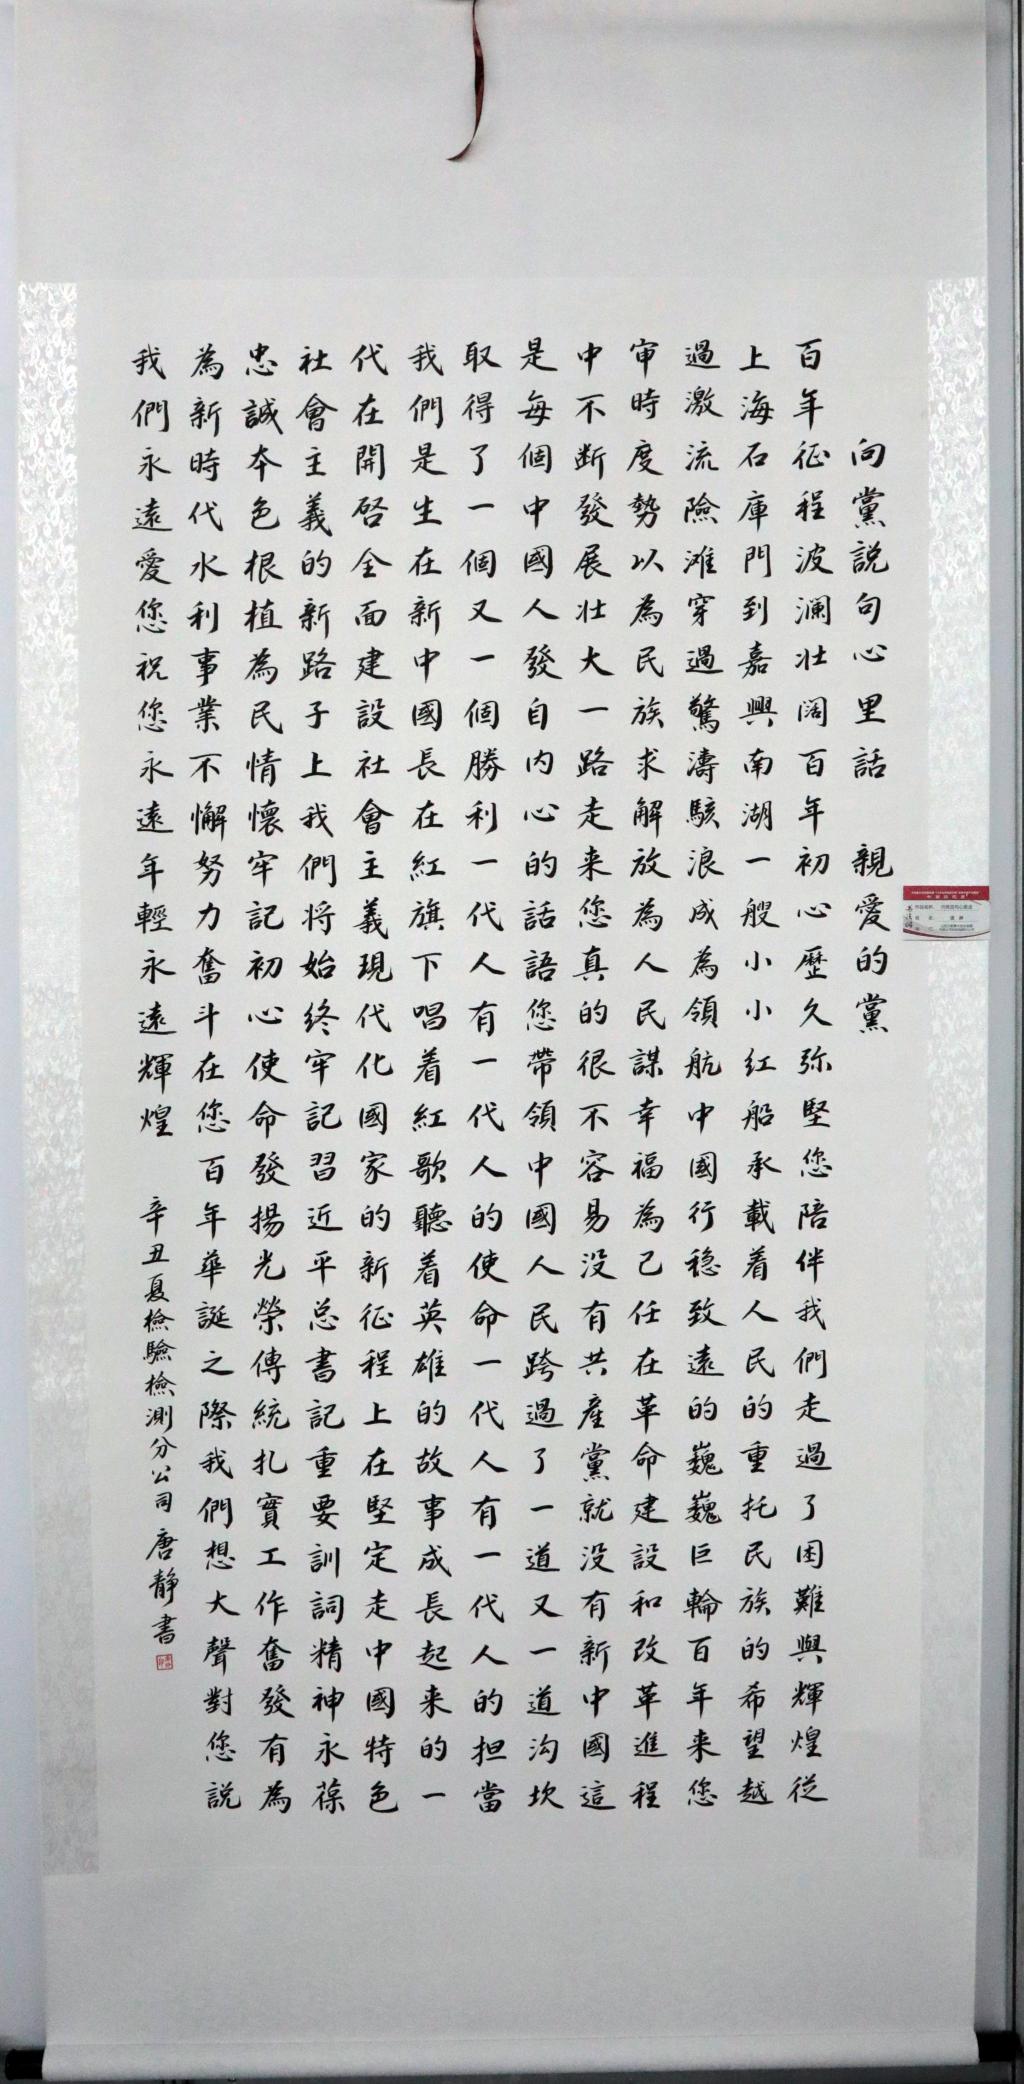 向黨説句心里話　親愛的黨
百年征程波澜壮阔百年初心歷久弥堅您陪伴我們走過了困難與輝煌從
上海石庫門到嘉興南湖一艘小小红船承載着人民的重托民族的希望越
過激流險滩穿過驚濤駭浪成為領航中國行稳致遠的巍巍巨輪百年来您
审時度勢以為民族求解放為人民謀幸福為己任在革命建設和改革進程
中不断發展壮大一路走来您真的很不容易没有共產黨就没有新中國這
是每個中國人發自内心的話語您帶領中國人民跨過了一道又一道沟坎
取得了一個又一個勝利一代人有一代人的使命一代人有一代人的担當
我們是生在新中國長在紅旗下唱着紅歌聽着英雄的故事成長起来的一
代在開啓全面建設社會主義現代化國家的新征程上在堅定走中國特色
社會主義的新路子上我們将始终牢記習近平总書記重要訓詞精神永葆
忠誠本色根植為民情懷牢記初心使命發揚光榮傳統扎實工作奮發有為
為新時代水利事業不懈努力奮斗在您百年華誕之際我們想大聲對您説
我們永遠愛您祝您永遠年輕永遠輝煌
辛丑夏檢驗檢測分公司唐静書